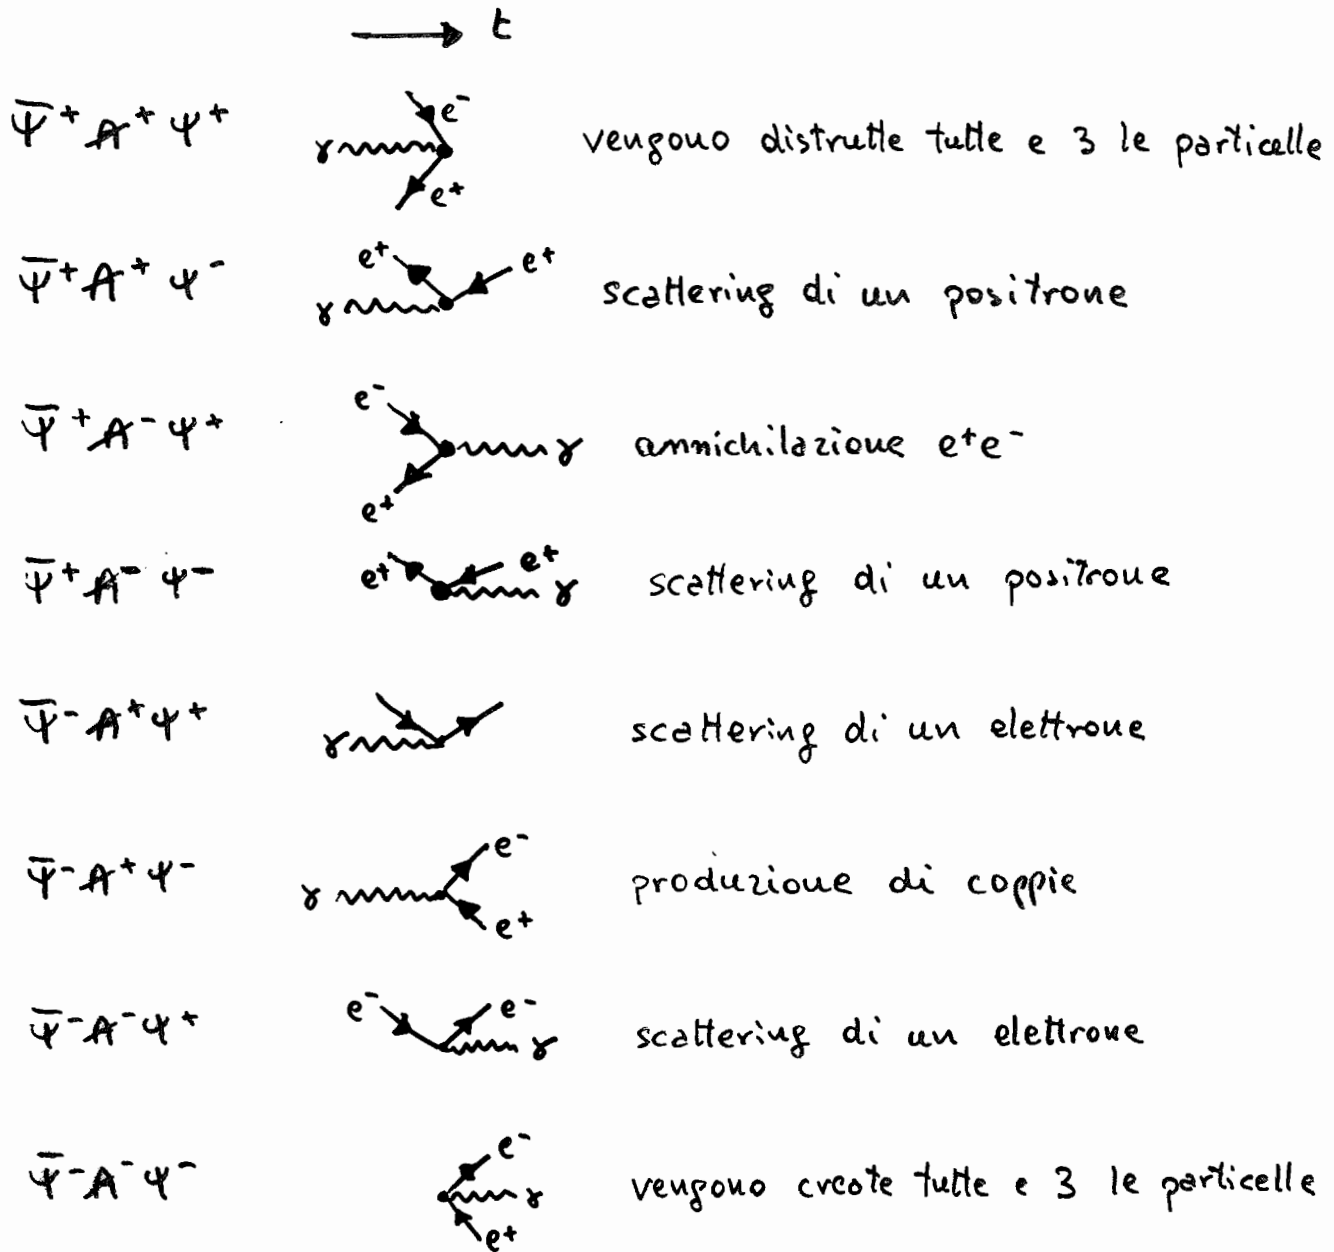 t
Ψ̄⁺ A̸⁺ Ψ⁺ γ e⁻ e⁺ vengono distrutte tutte e 3 le particelle
Ψ̄⁺ A̸⁺ Ψ⁻ γ e⁺ e⁺ scattering di un positrone
Ψ̄⁺ A̸⁻ Ψ⁺ e⁻ e⁺ γ annichilazione e⁺e⁻
Ψ̄⁺ A̸⁻ Ψ⁻ e⁺ e⁺ γ scattering di un positrone
Ψ̄⁻ A̸⁺ Ψ⁺ γ scattering di un elettrone
Ψ̄⁻ A̸⁺ Ψ⁻ γ e⁻ e⁺ produzione di coppie
Ψ̄⁻ A̸⁻ Ψ⁺ e⁻ e⁻ γ scattering di un elettrone
Ψ̄⁻ A̸⁻ Ψ⁻ e⁻ γ e⁺ vengono create tutte e 3 le particelle